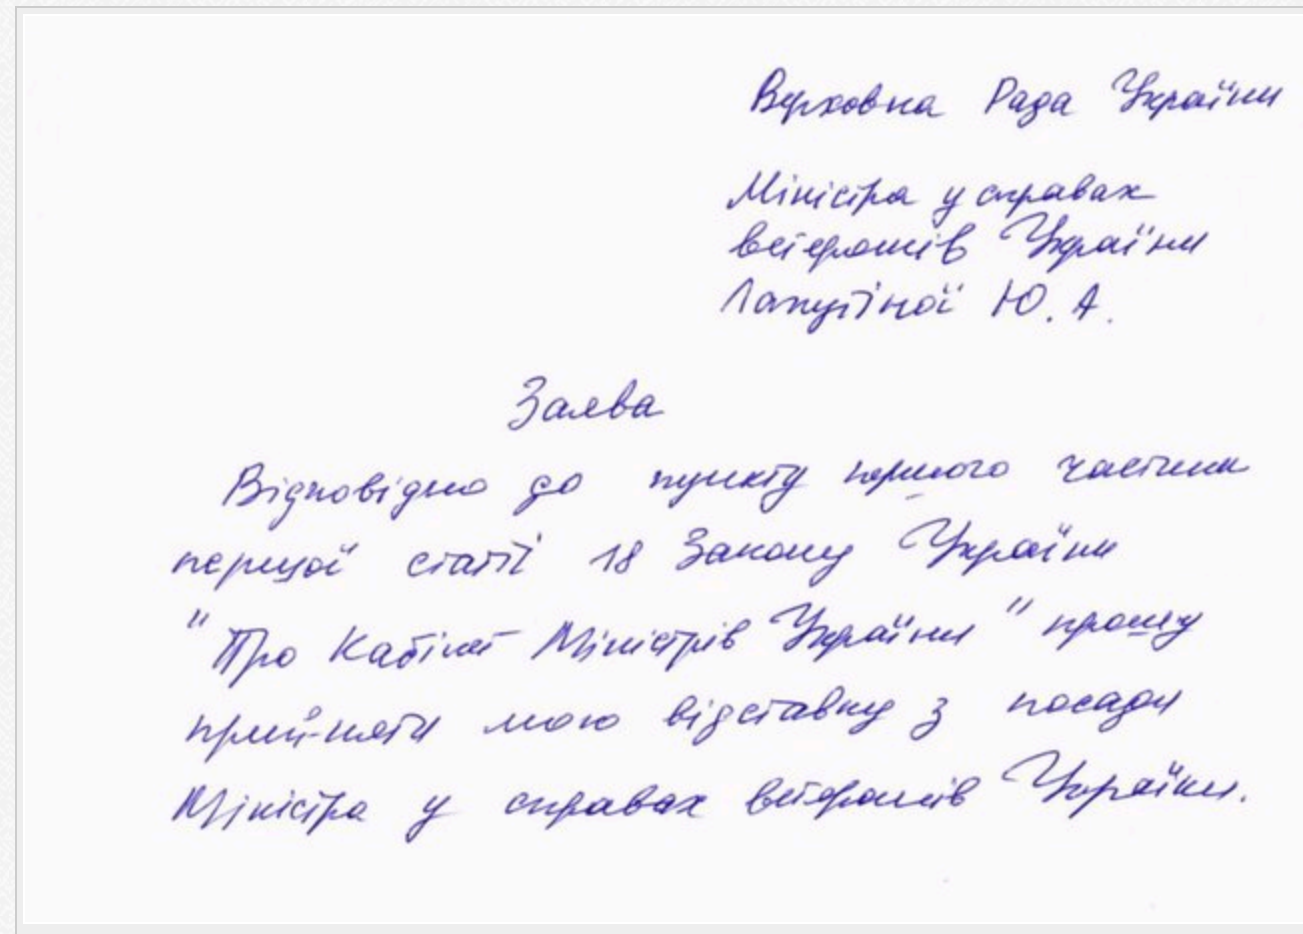 Верховна Рада України
Міністра у справах
ветеранів України
Лапутіної Ю. А.
Заява
Відповідно до пункту першого частини
першої статті 18 Закону України
"Про Кабінет Міністрів України" прошу
прийняти мою відставку з посади
Міністра у справах ветеранів України.